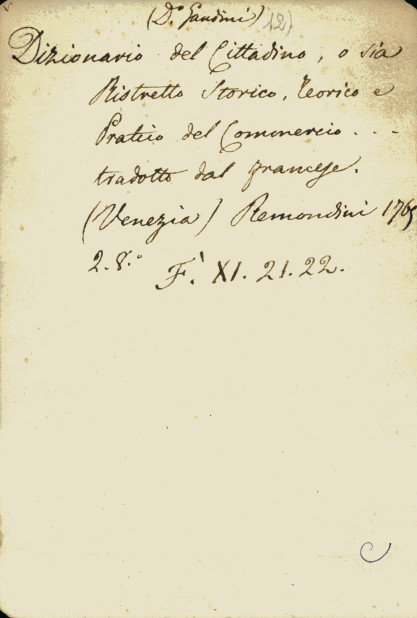 (D.º Gandini) 12)
Dizionario del Cittadino, o sia
Ristretto Storico, Teorico e
Pratico del Commercio . . .
tradotto dal francese.
(Venezia) Remondini 1765
2. 8.º F. XI. 21. 22.